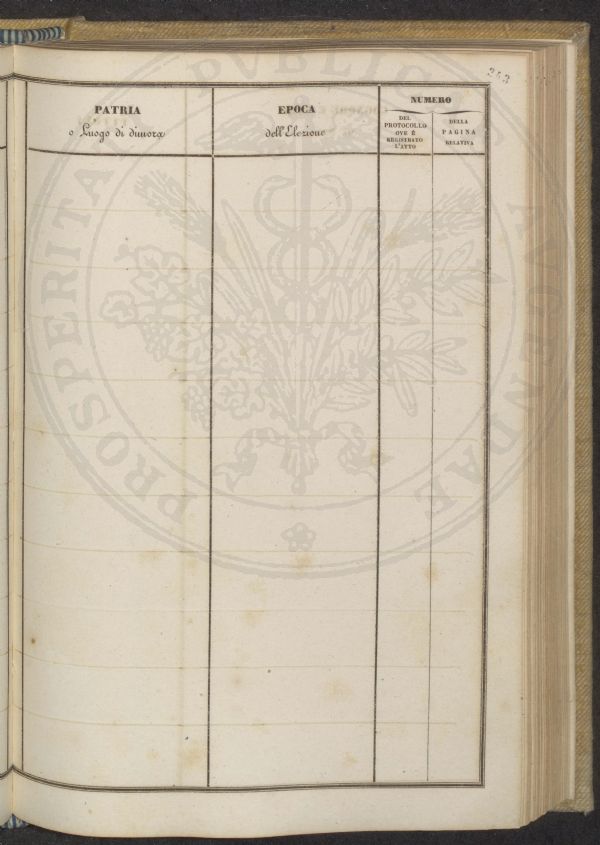 243
PATRIA
o Luogo di dimora
EPOCA
dell'Elezione
NUMERO
DEL
PROTOCOLLO
OVE È
REGISTRATO
L'ATTO
DELLA
PAGINA
RELATIVA
PROSPERITATI PUBLICAE AUGENDAE